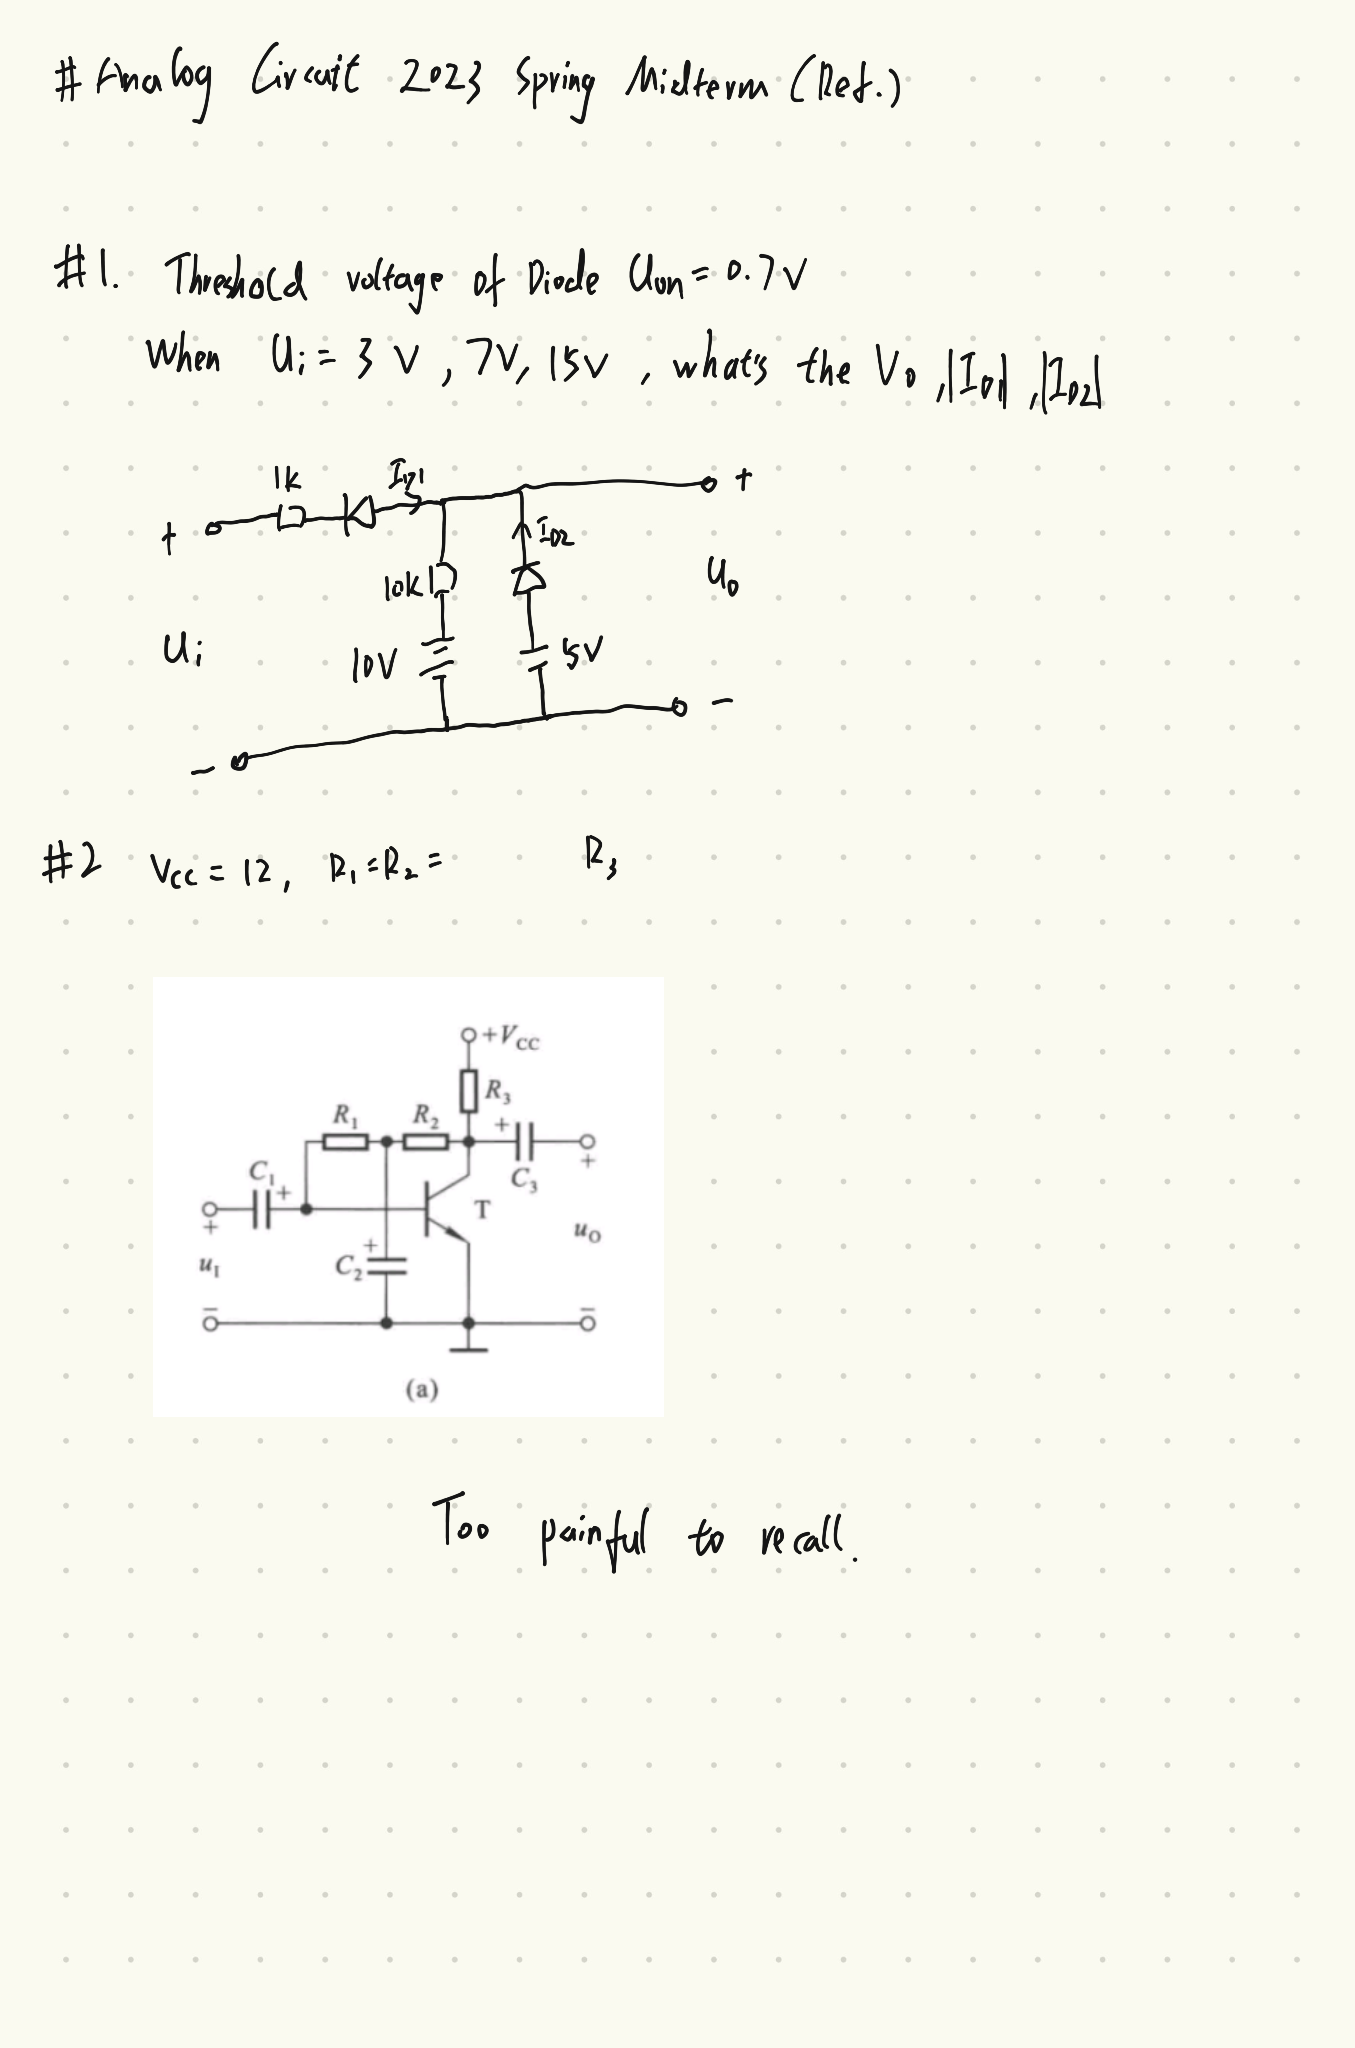 # Analog Circuit 2023 Spring Midterm (Ret.)
#1. Threshold voltage of Diode Uon = 0.7V
When Ui = 3V, 7V, 15V, what's the Vo, |ID1|, |ID2|
1k ID1 +
+ 10K ID2 Uo
Ui 10V 5V
-
-
#2 VCC = 12, R1 = R2 = R3
+VCC
R3
R1 R2 +
C1 + C3 +
+ T uO
uI C2 +
- -
(a)
Too painful to recall.